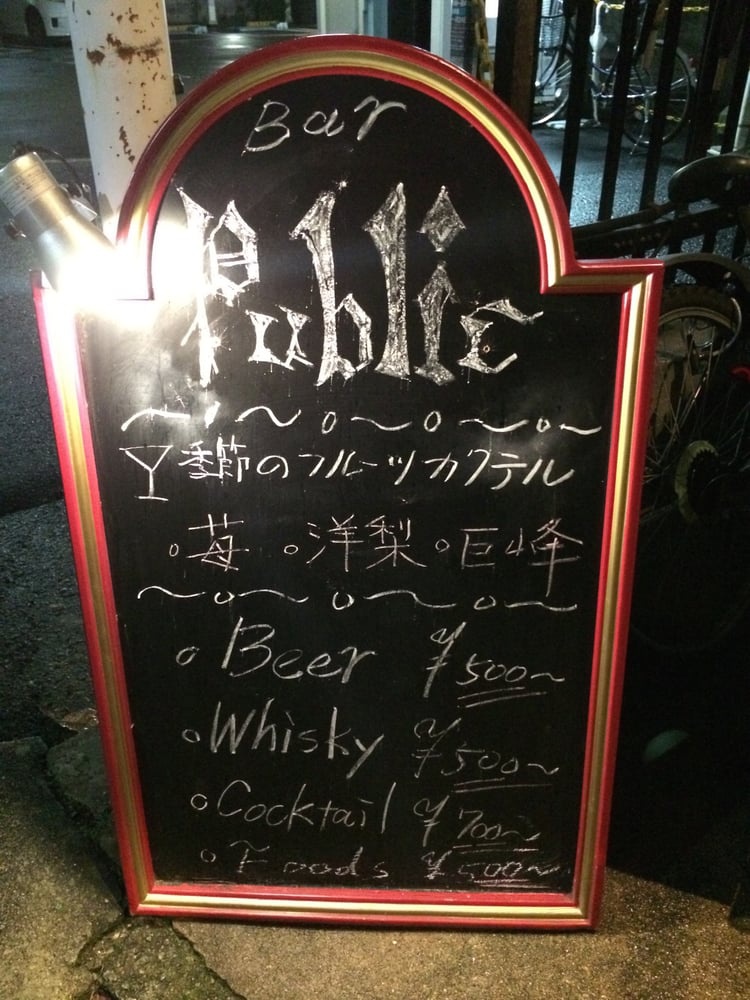 Bar
Public
季節のフルーツカクテル
。苺 。洋梨 。巨峰
。Beer ¥500～
。Whisky ¥500～
。Cocktail ¥700～
。Foods ¥500～